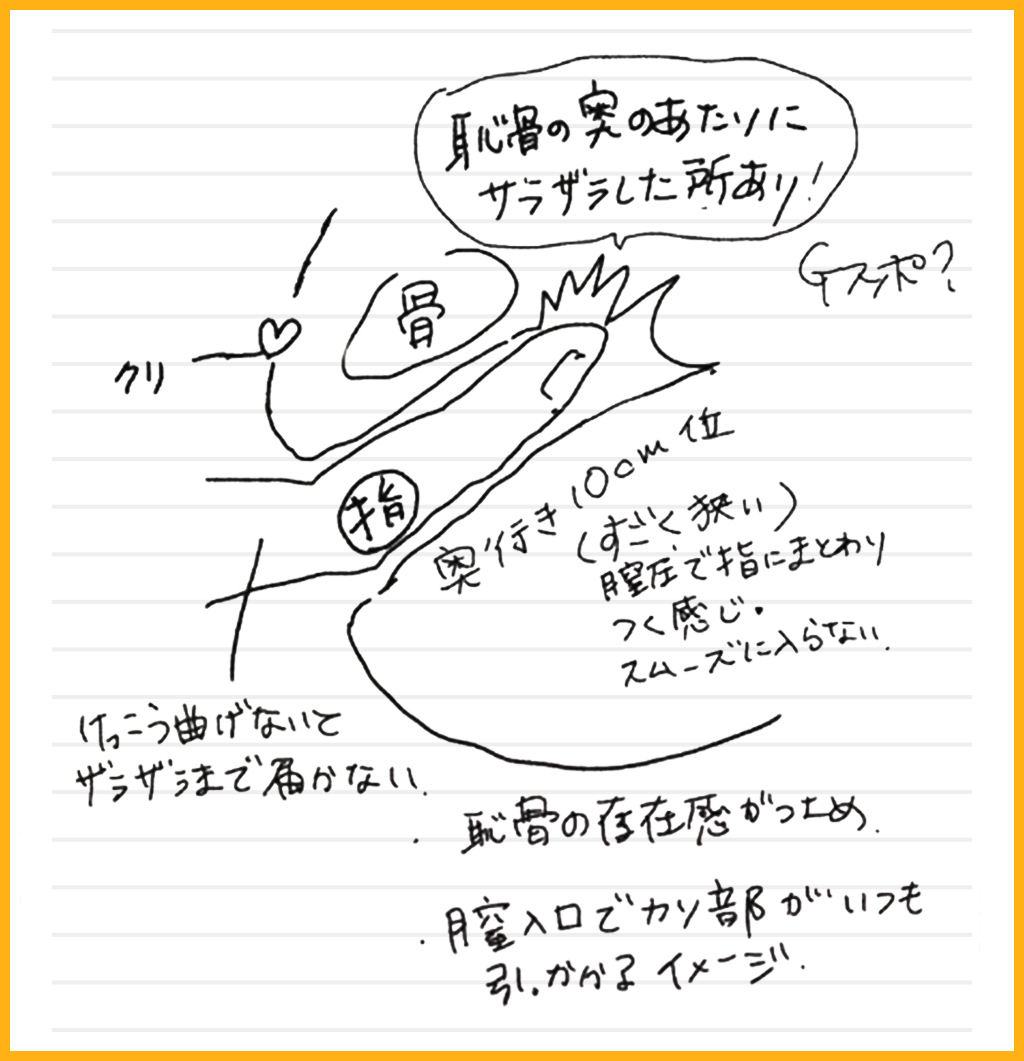 恥骨の奥のあたりに
ザラザラした所あり!
Gスッポ?
骨
クリ
指
奥行き10cm位
(すごく狭い)
膣圧で指にまとわり
つく感じ.
スムーズに入らない.
けっこう曲げないと
ザラザラまで届かない.
・恥骨の存在感がつため.
・膣入口でカリ部がいつも
引っかかるイメージ.